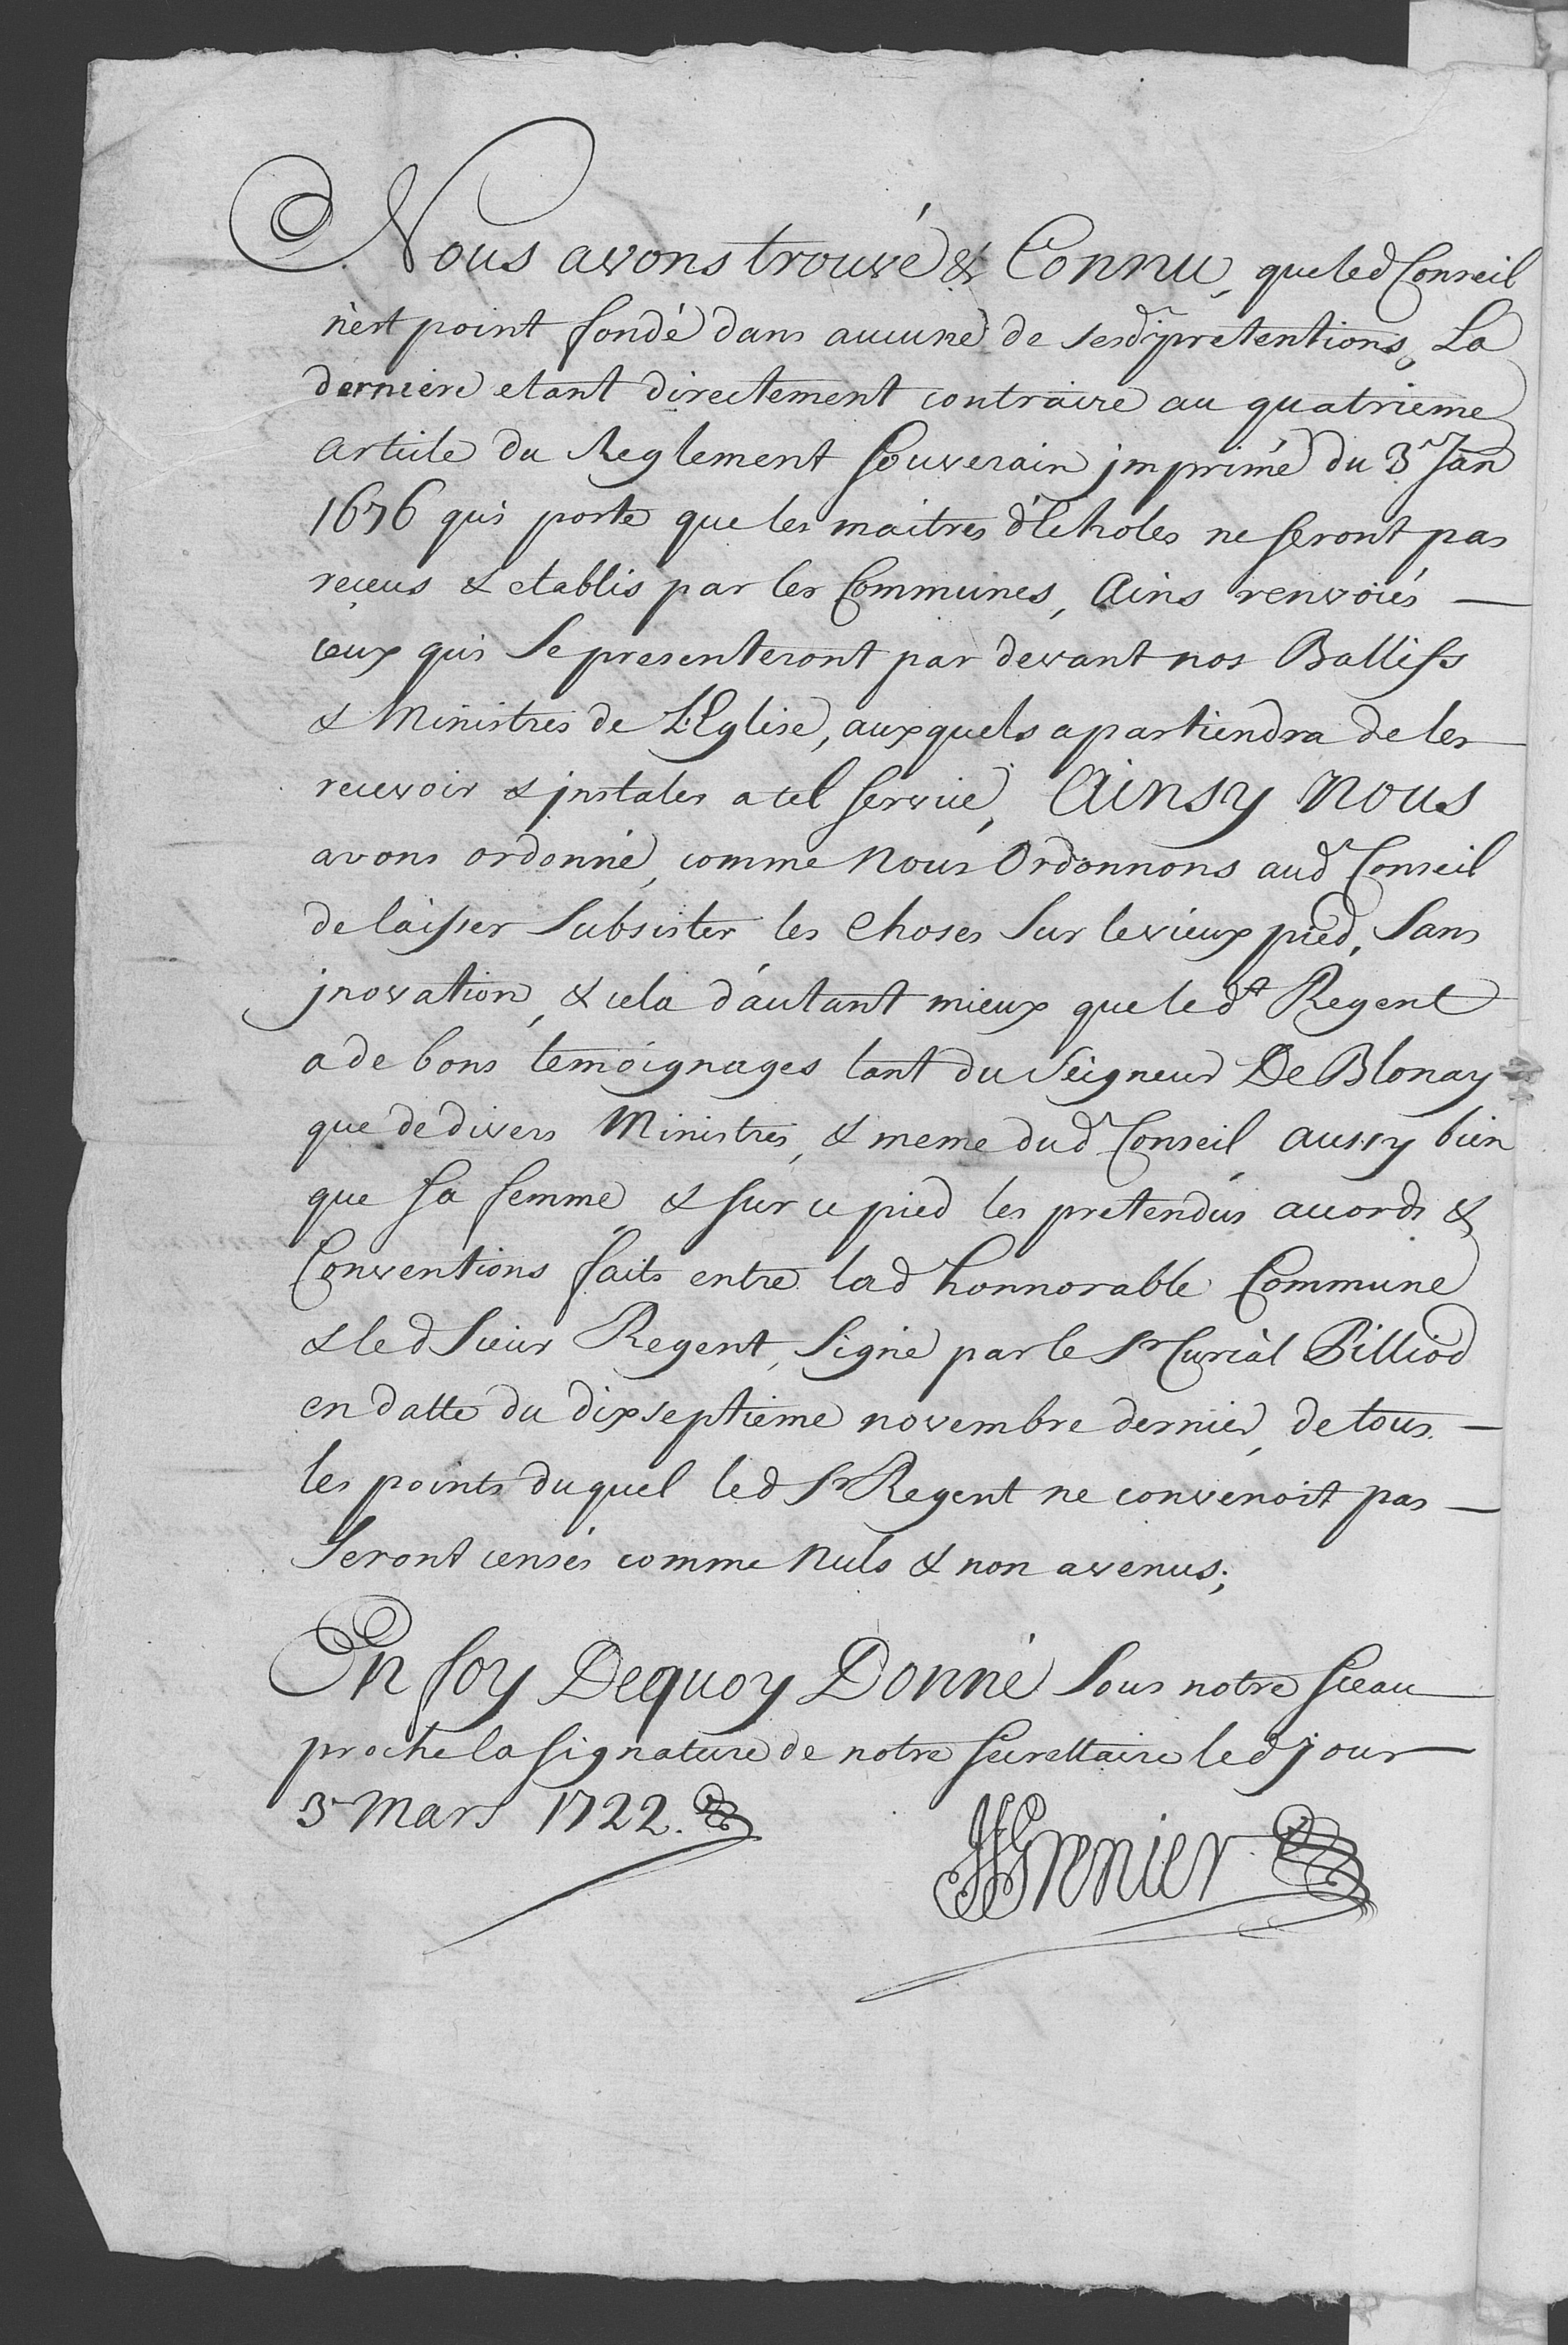 Nous avons trouvé & Connu, que led Conseil
n'est point fondé dans aucune de sesd pretentions, La
derniere etant directement contraire au quatrieme
article du Reglement Souverain jmprimé du 3e Jan
1676 qui porte que les maitres d'Echoles ne seront pas
reçeus & etablis par les Communes, Ains renvoiés —
ceux qui Se presenteront par devant nos Ballifs
& Ministres de L'Eglise, auxquels apartiendra de les
recevoir & jnstaler a tel service, Ainsy Nous
avons ordonné, comme Nous Ordonnons aud Conseil
de laisser Subsister les choses Sur le vieux pied, Sans
jnovation, & cela d'autant mieux que led t Regent
a de bons temoignages tant du Seigneur De Blonay
que de divers Ministres, & meme dud Conseil, aussy bien
que sa femme, & sur ce pied les pretendus acords &
Conventions faits entre lad honnorable Commune
& led Sieur Regent, Signé par le Sr Curial Pilliod
en datte du dixseptieme novembre dernier, de tous —
les points duquel led Sr Regent ne convenoit pas —
Seront censés comme Nuls & non avenus;
En foy Dequoy Donné Sous notre sceau
proche la signature de notre secrettaire led jour
3e Mars 1722.
Grenier